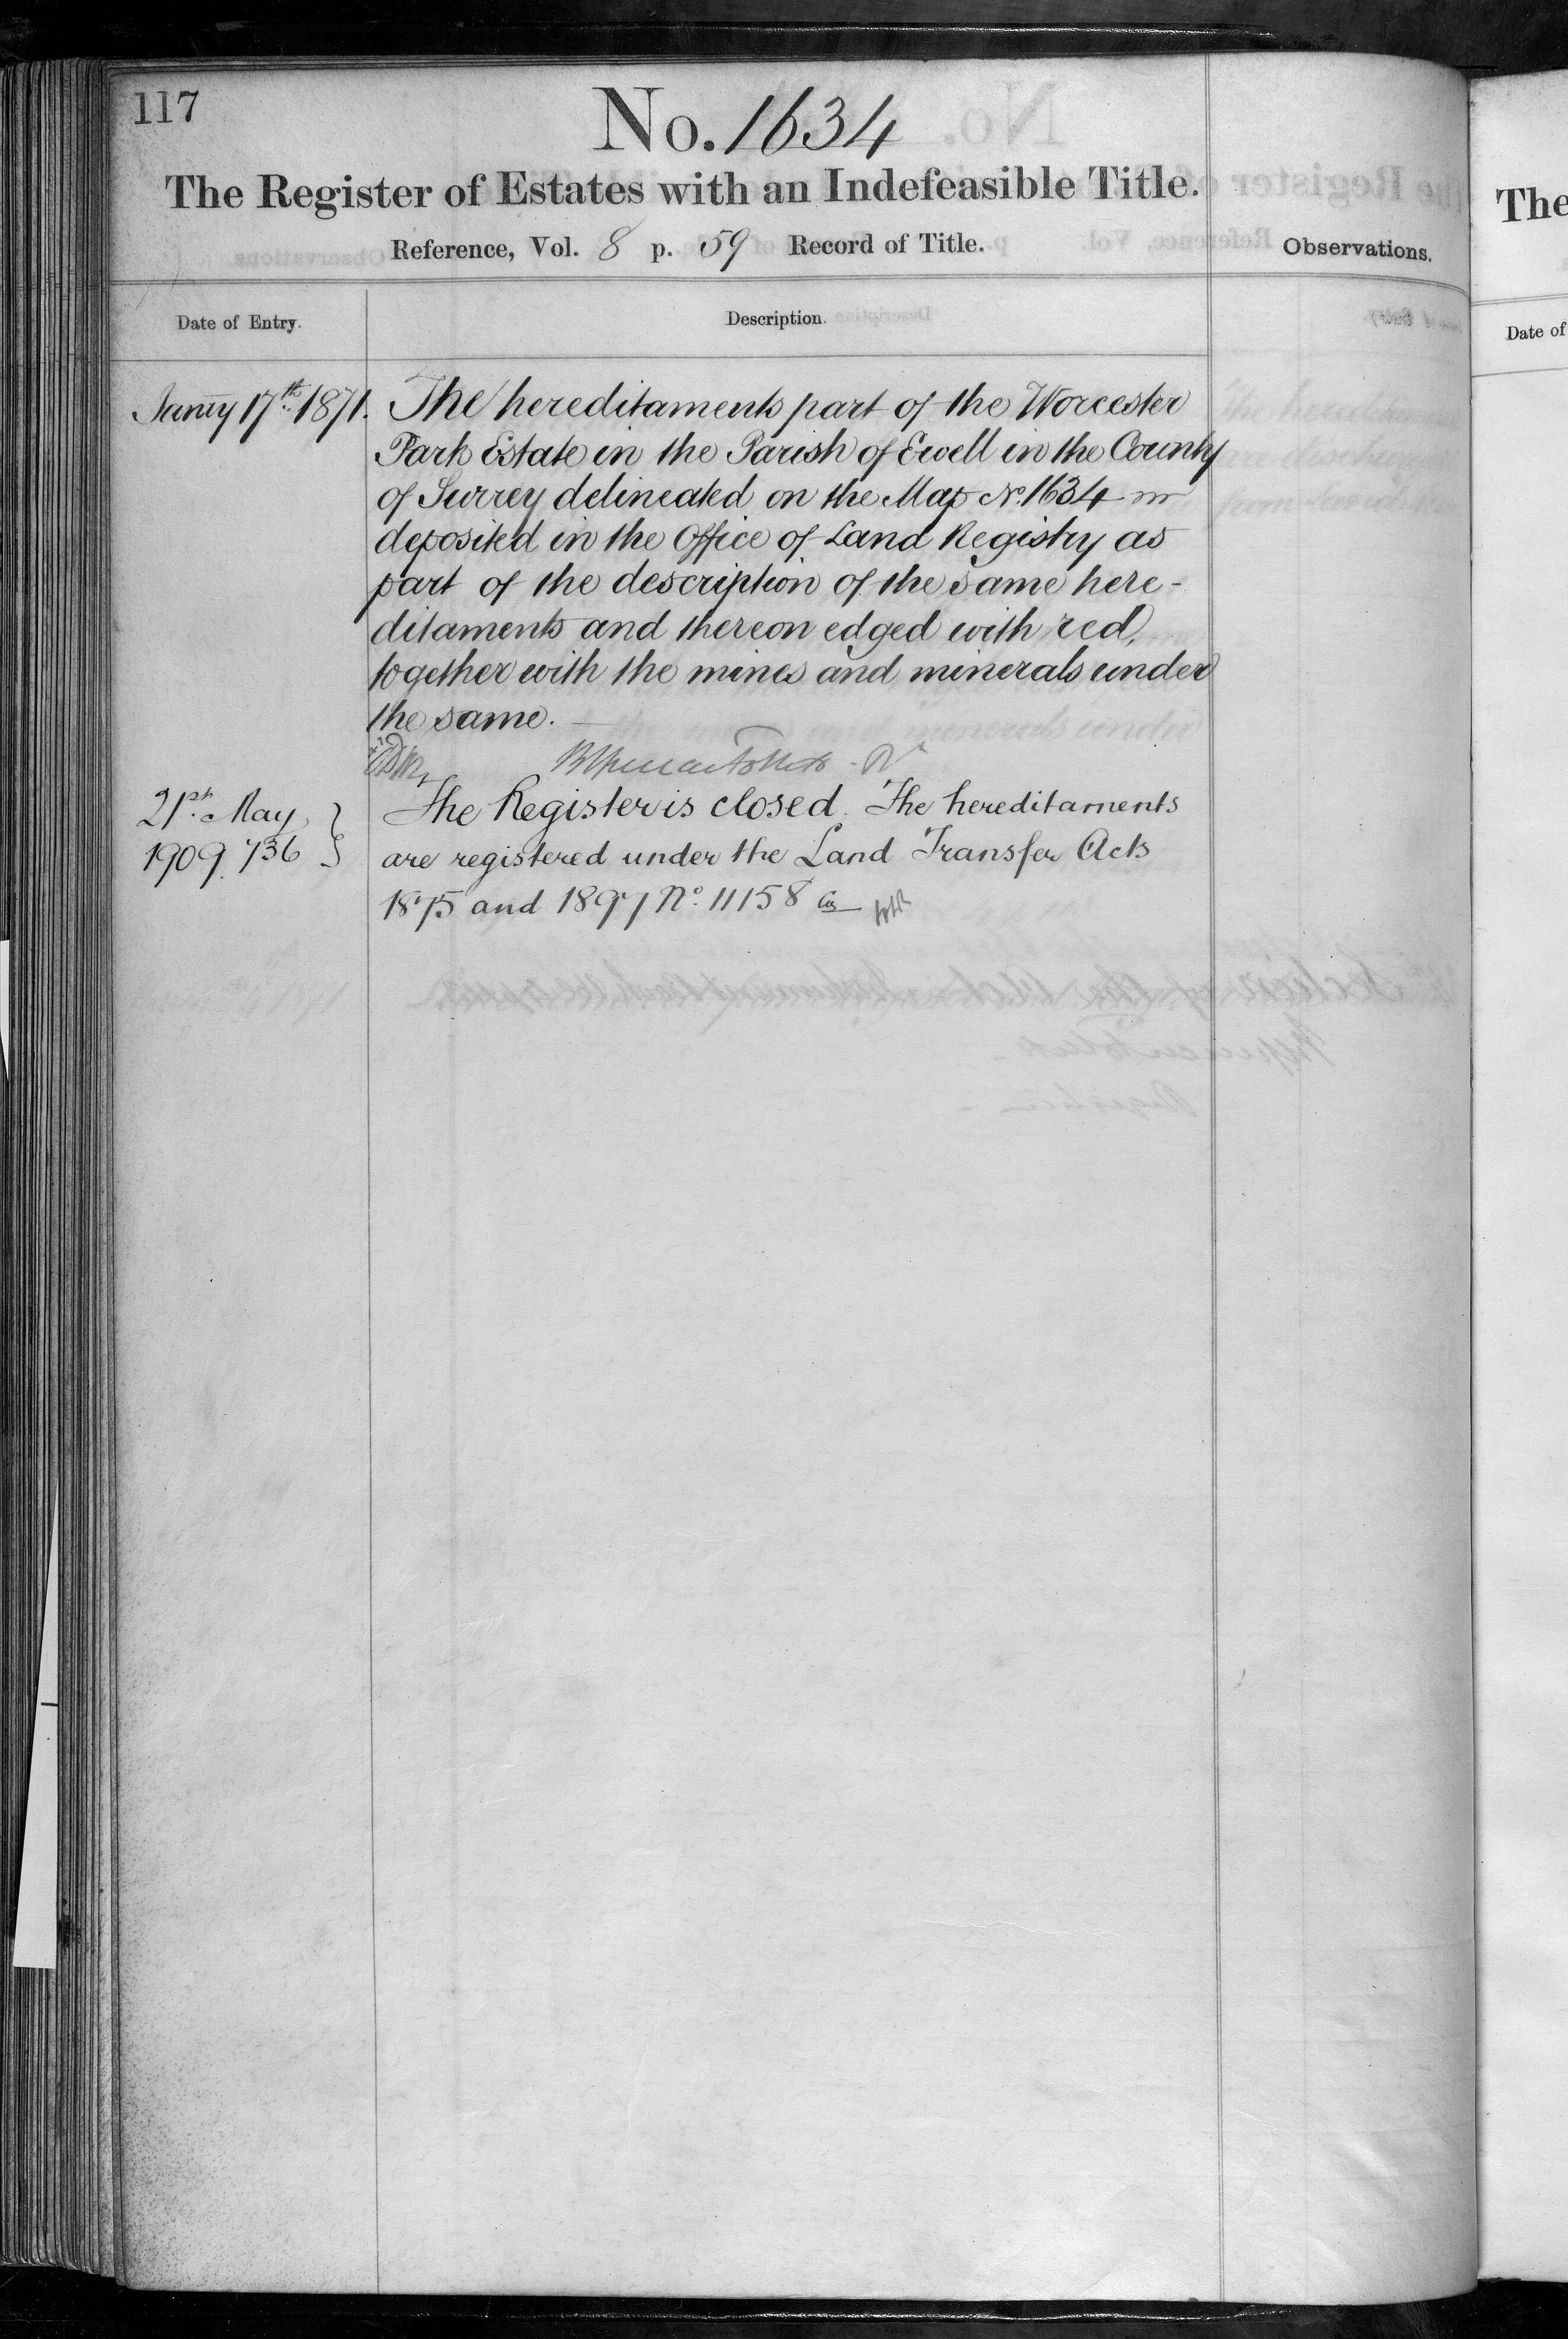 117
No. 1634
The Register of Estates with an Indefeasible Title.
Reference, Vol. 8 p. 59 Record of Title.
Observations.
Date of Entry.
Description.
Janry 17th. 1871.
The hereditaments part of the Worcester
Park Estate in the Parish of Ewell in the County
of Surrey delineated on the Map No. 1634
deposited in the Office of Land Registry as
part of the description of the same here-
ditaments and thereon edged with red,
together with the mines and minerals under
the same.
21st. May
1909. 736
The Register is closed. The hereditaments
are registered under the Land Transfer Acts
1875 and 1897 No. 11158
The
Date of